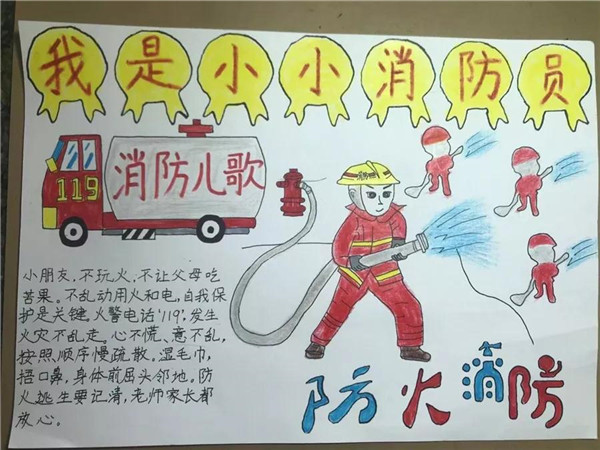 我是小小消防员
119
消防儿歌
小朋友,不玩火,不让父母吃
苦果。不乱动用火和电,自我保
护是关键。火警电话"119",发生
火灾不乱走。心不慌、意不乱,
按照顺序慢疏散。湿毛巾,
捂口鼻,身体前屈头邻地。防
火逃生要记清,老师家长都
放心。
防火消防